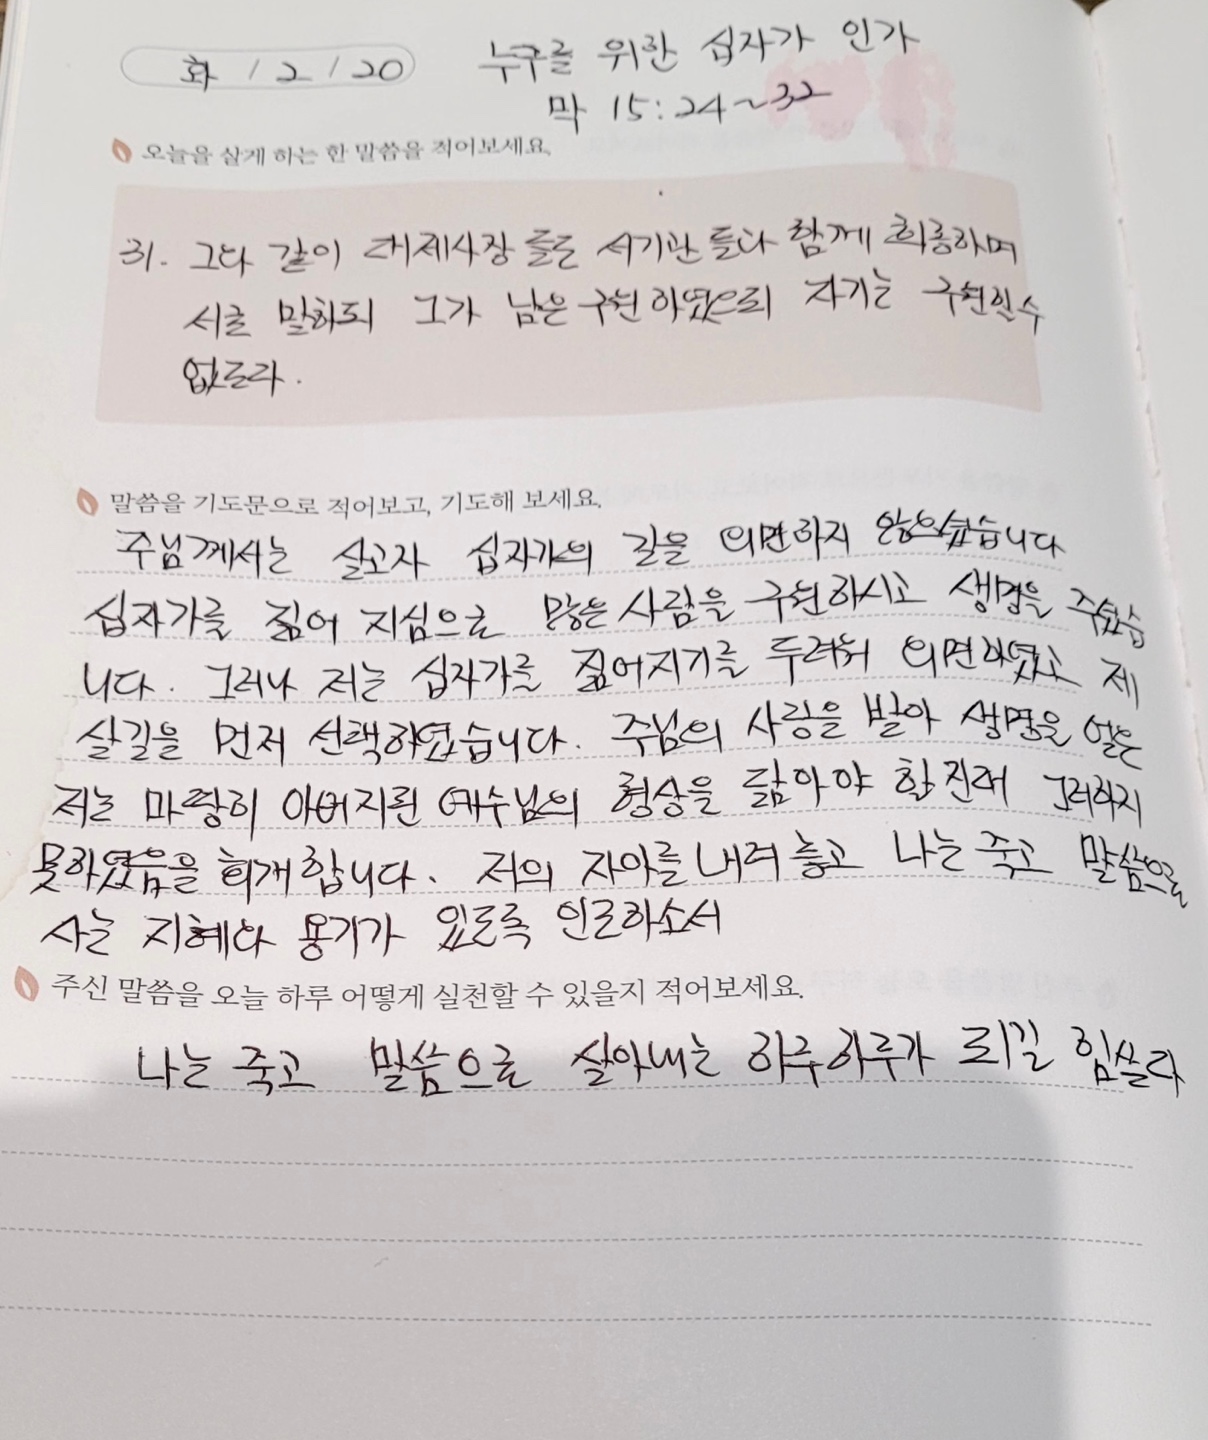 화 / 2 / 20
누구를 위한 십자가 인가
막 15:24~32
오늘을 살게 하는 한 말씀을 적어보세요.
31. 그와 같이 대제사장 들도 서기관 들과 함께 희롱하며
서로 말하되 그가 남은 구원 하였으되 자기는 구원할수
없도다.
말씀을 기도문으로 적어보고, 기도해 보세요.
주님께서는 살고자 십자가의 길을 외면하지 않으셨습니다
십자가를 짊어 지심으로 많은 사람을 구원하시고 생명을 주셨습
니다. 그러나 저는 십자가를 짊어지기를 두려워 외면하였고 제
살길을 먼저 선택하였습니다. 주님의 사랑을 받아 생명을 얻은
저는 마땅히 아버지된 예수님의 형상을 닮아야 할진대 그러하지
못하였음을 회개합니다. 저의 자아를 내려 놓고 나는 죽고 말씀으로
사는 지혜와 용기가 있도록 인도하소서
주신 말씀을 오늘 하루 어떻게 실천할 수 있을지 적어보세요.
나는 죽고 말씀으로 살아내는 하루하루가 되길 힘쓸다